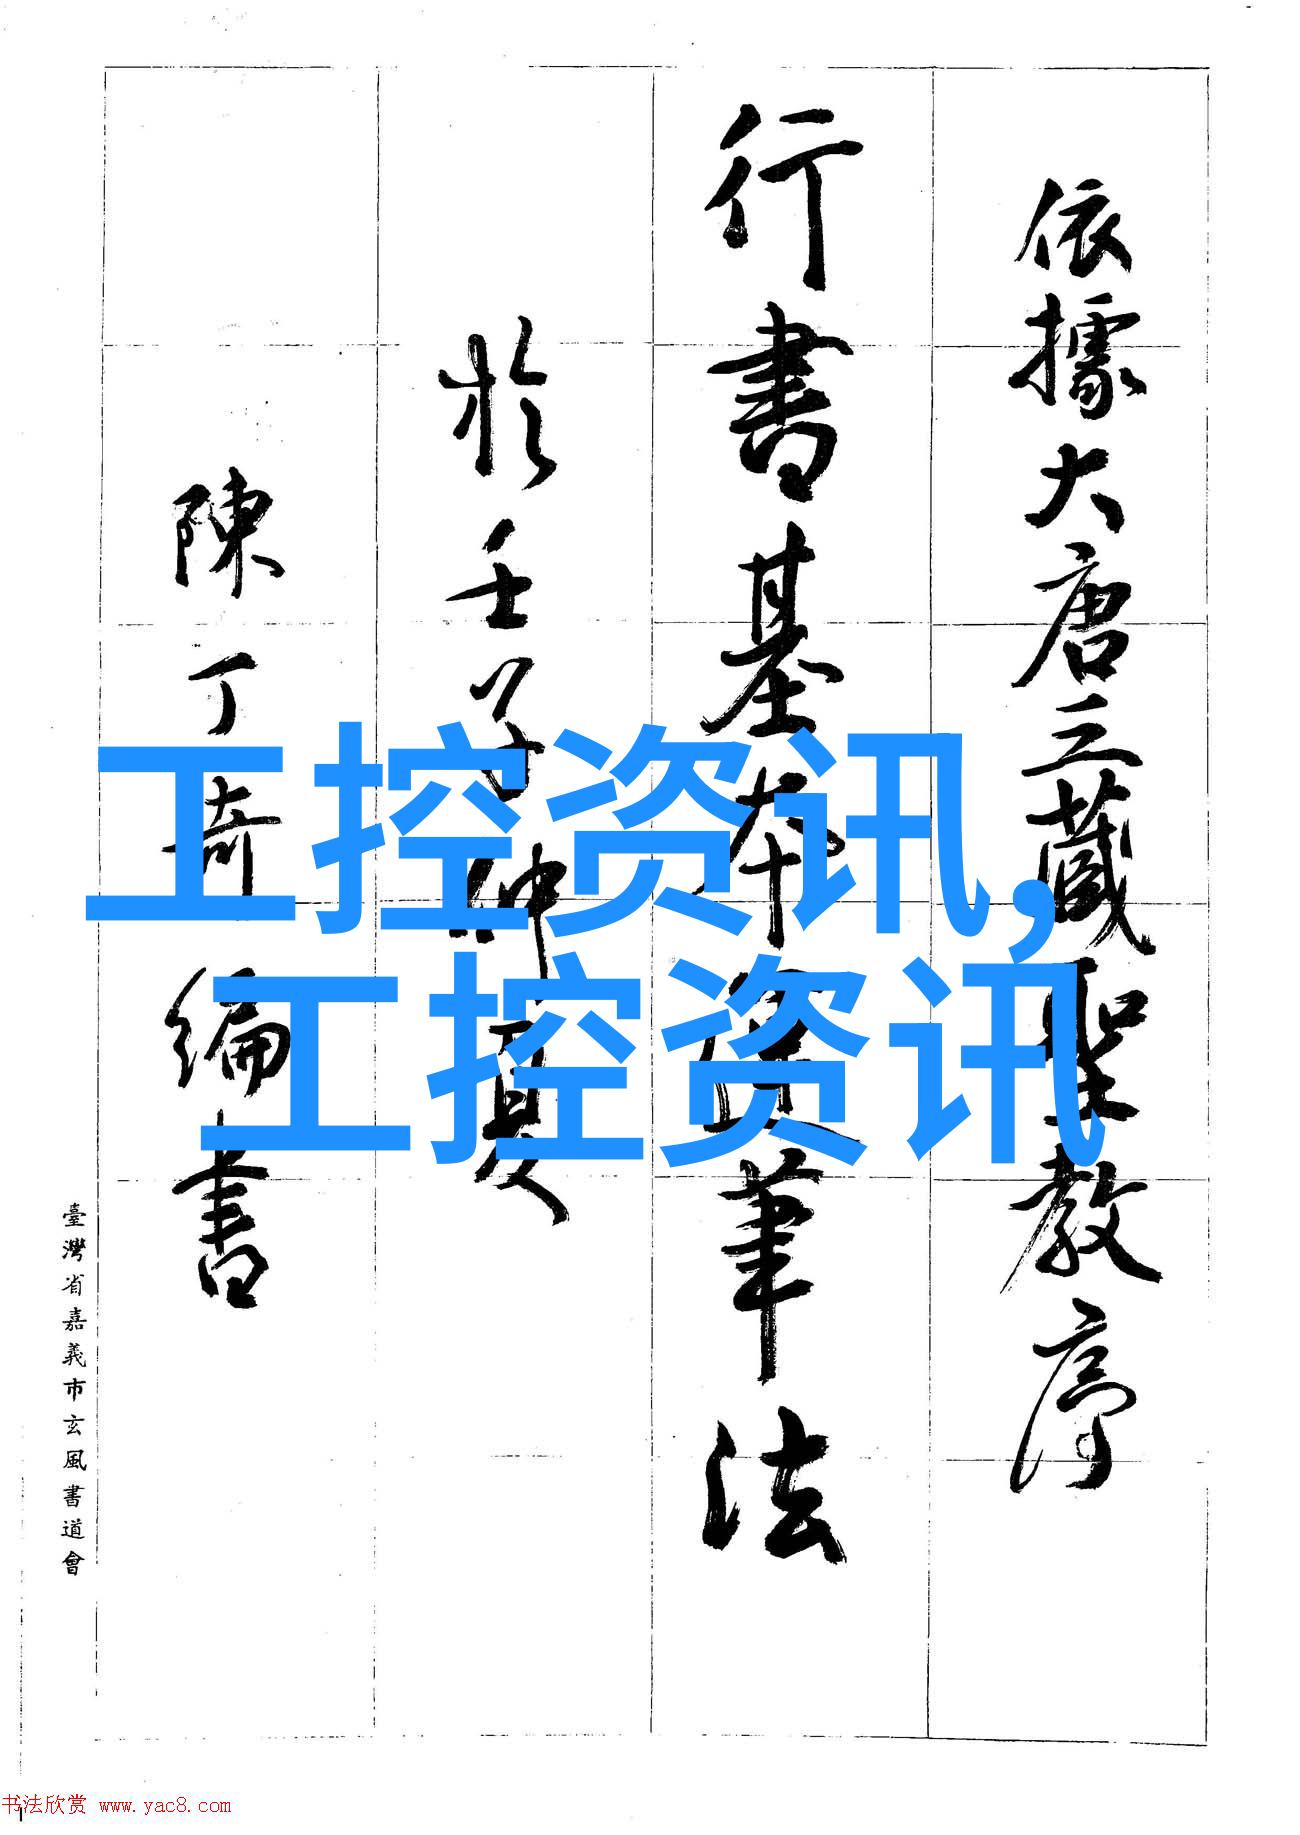 依據大唐三藏聖教序
行書基本運筆法
於壬子仲夏
陳丁奇編書
臺灣省嘉義市玄風書道會
工控资讯,
工控资讯
书法欣赏 www.yac8.com
1